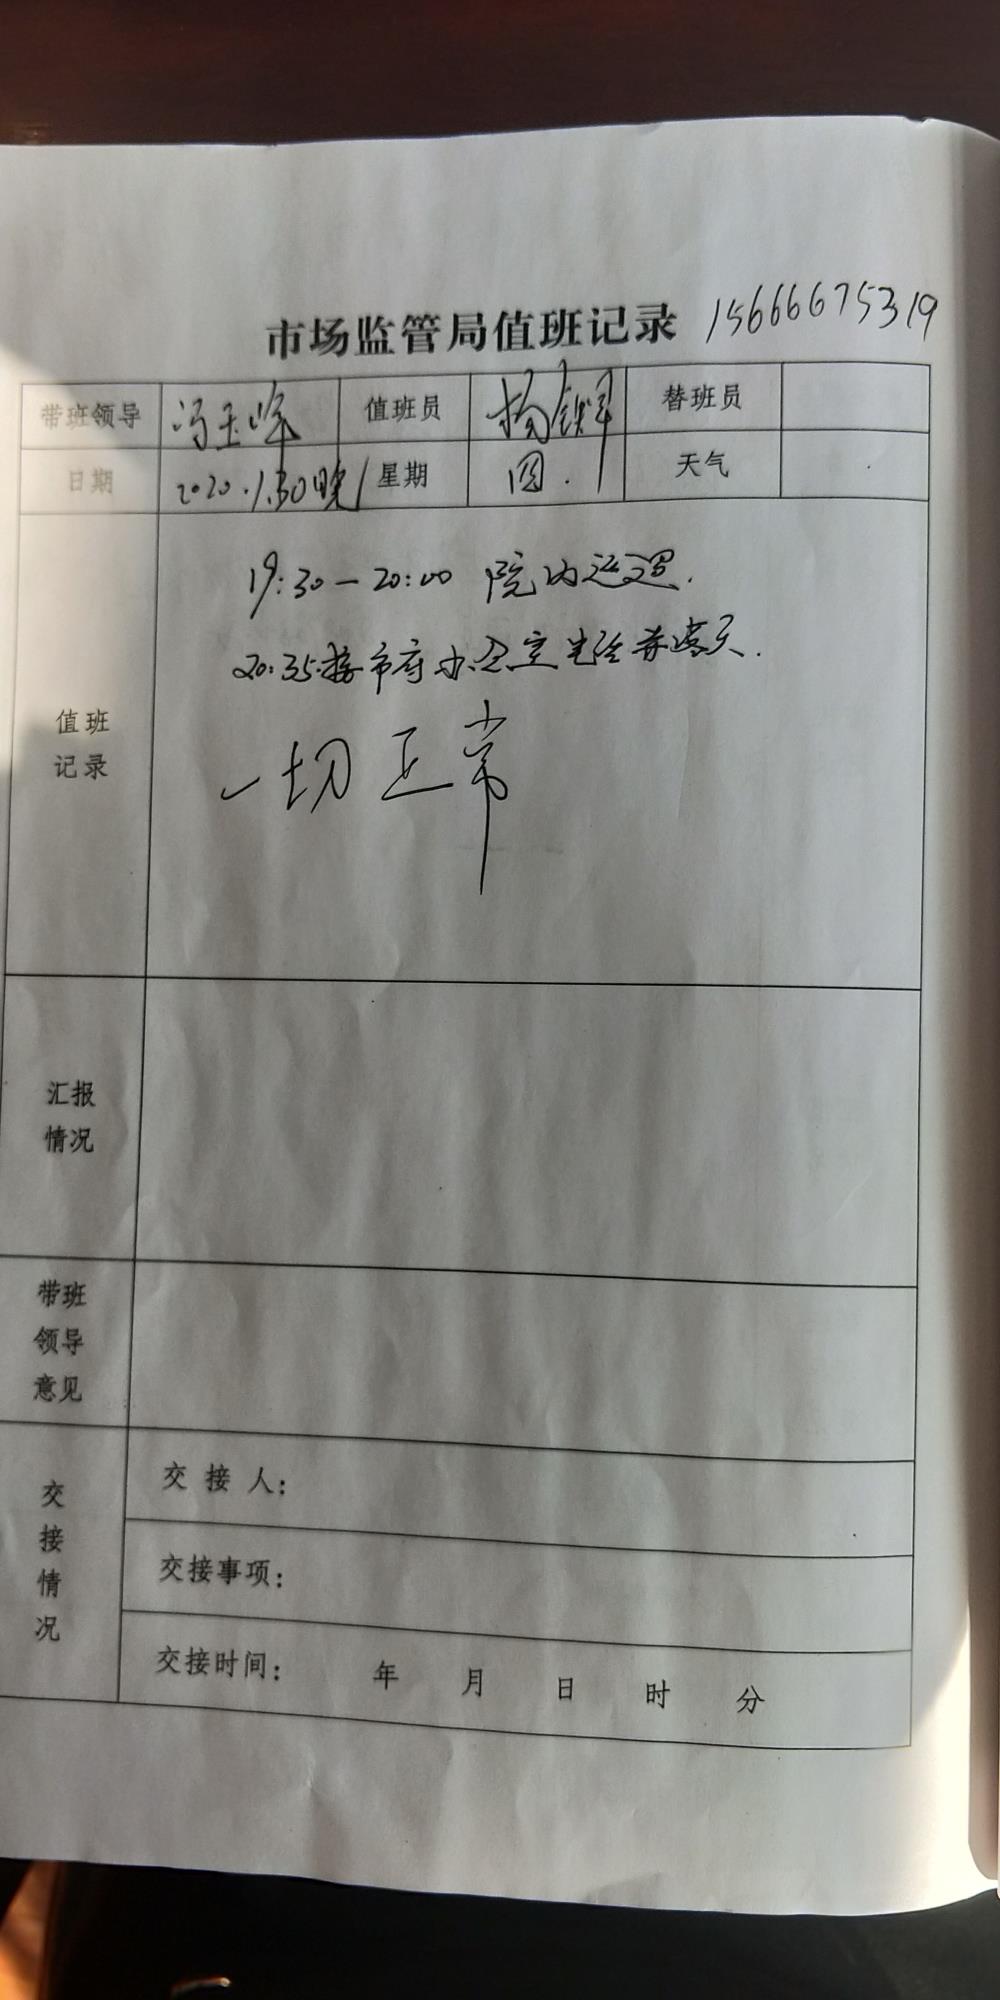 市场监管局值班记录 15666675319
带班领导 冯玉峰 值班员 杨 替班员
日期 2020.1.30晚 星期 四. 天气
值班记录
19:30—20:00 院内巡逻.
20:35接市府办公室
一切正常
汇报情况
带班领导意见
交接情况
交接人:
交接事项:
交接时间: 年 月 日 时 分